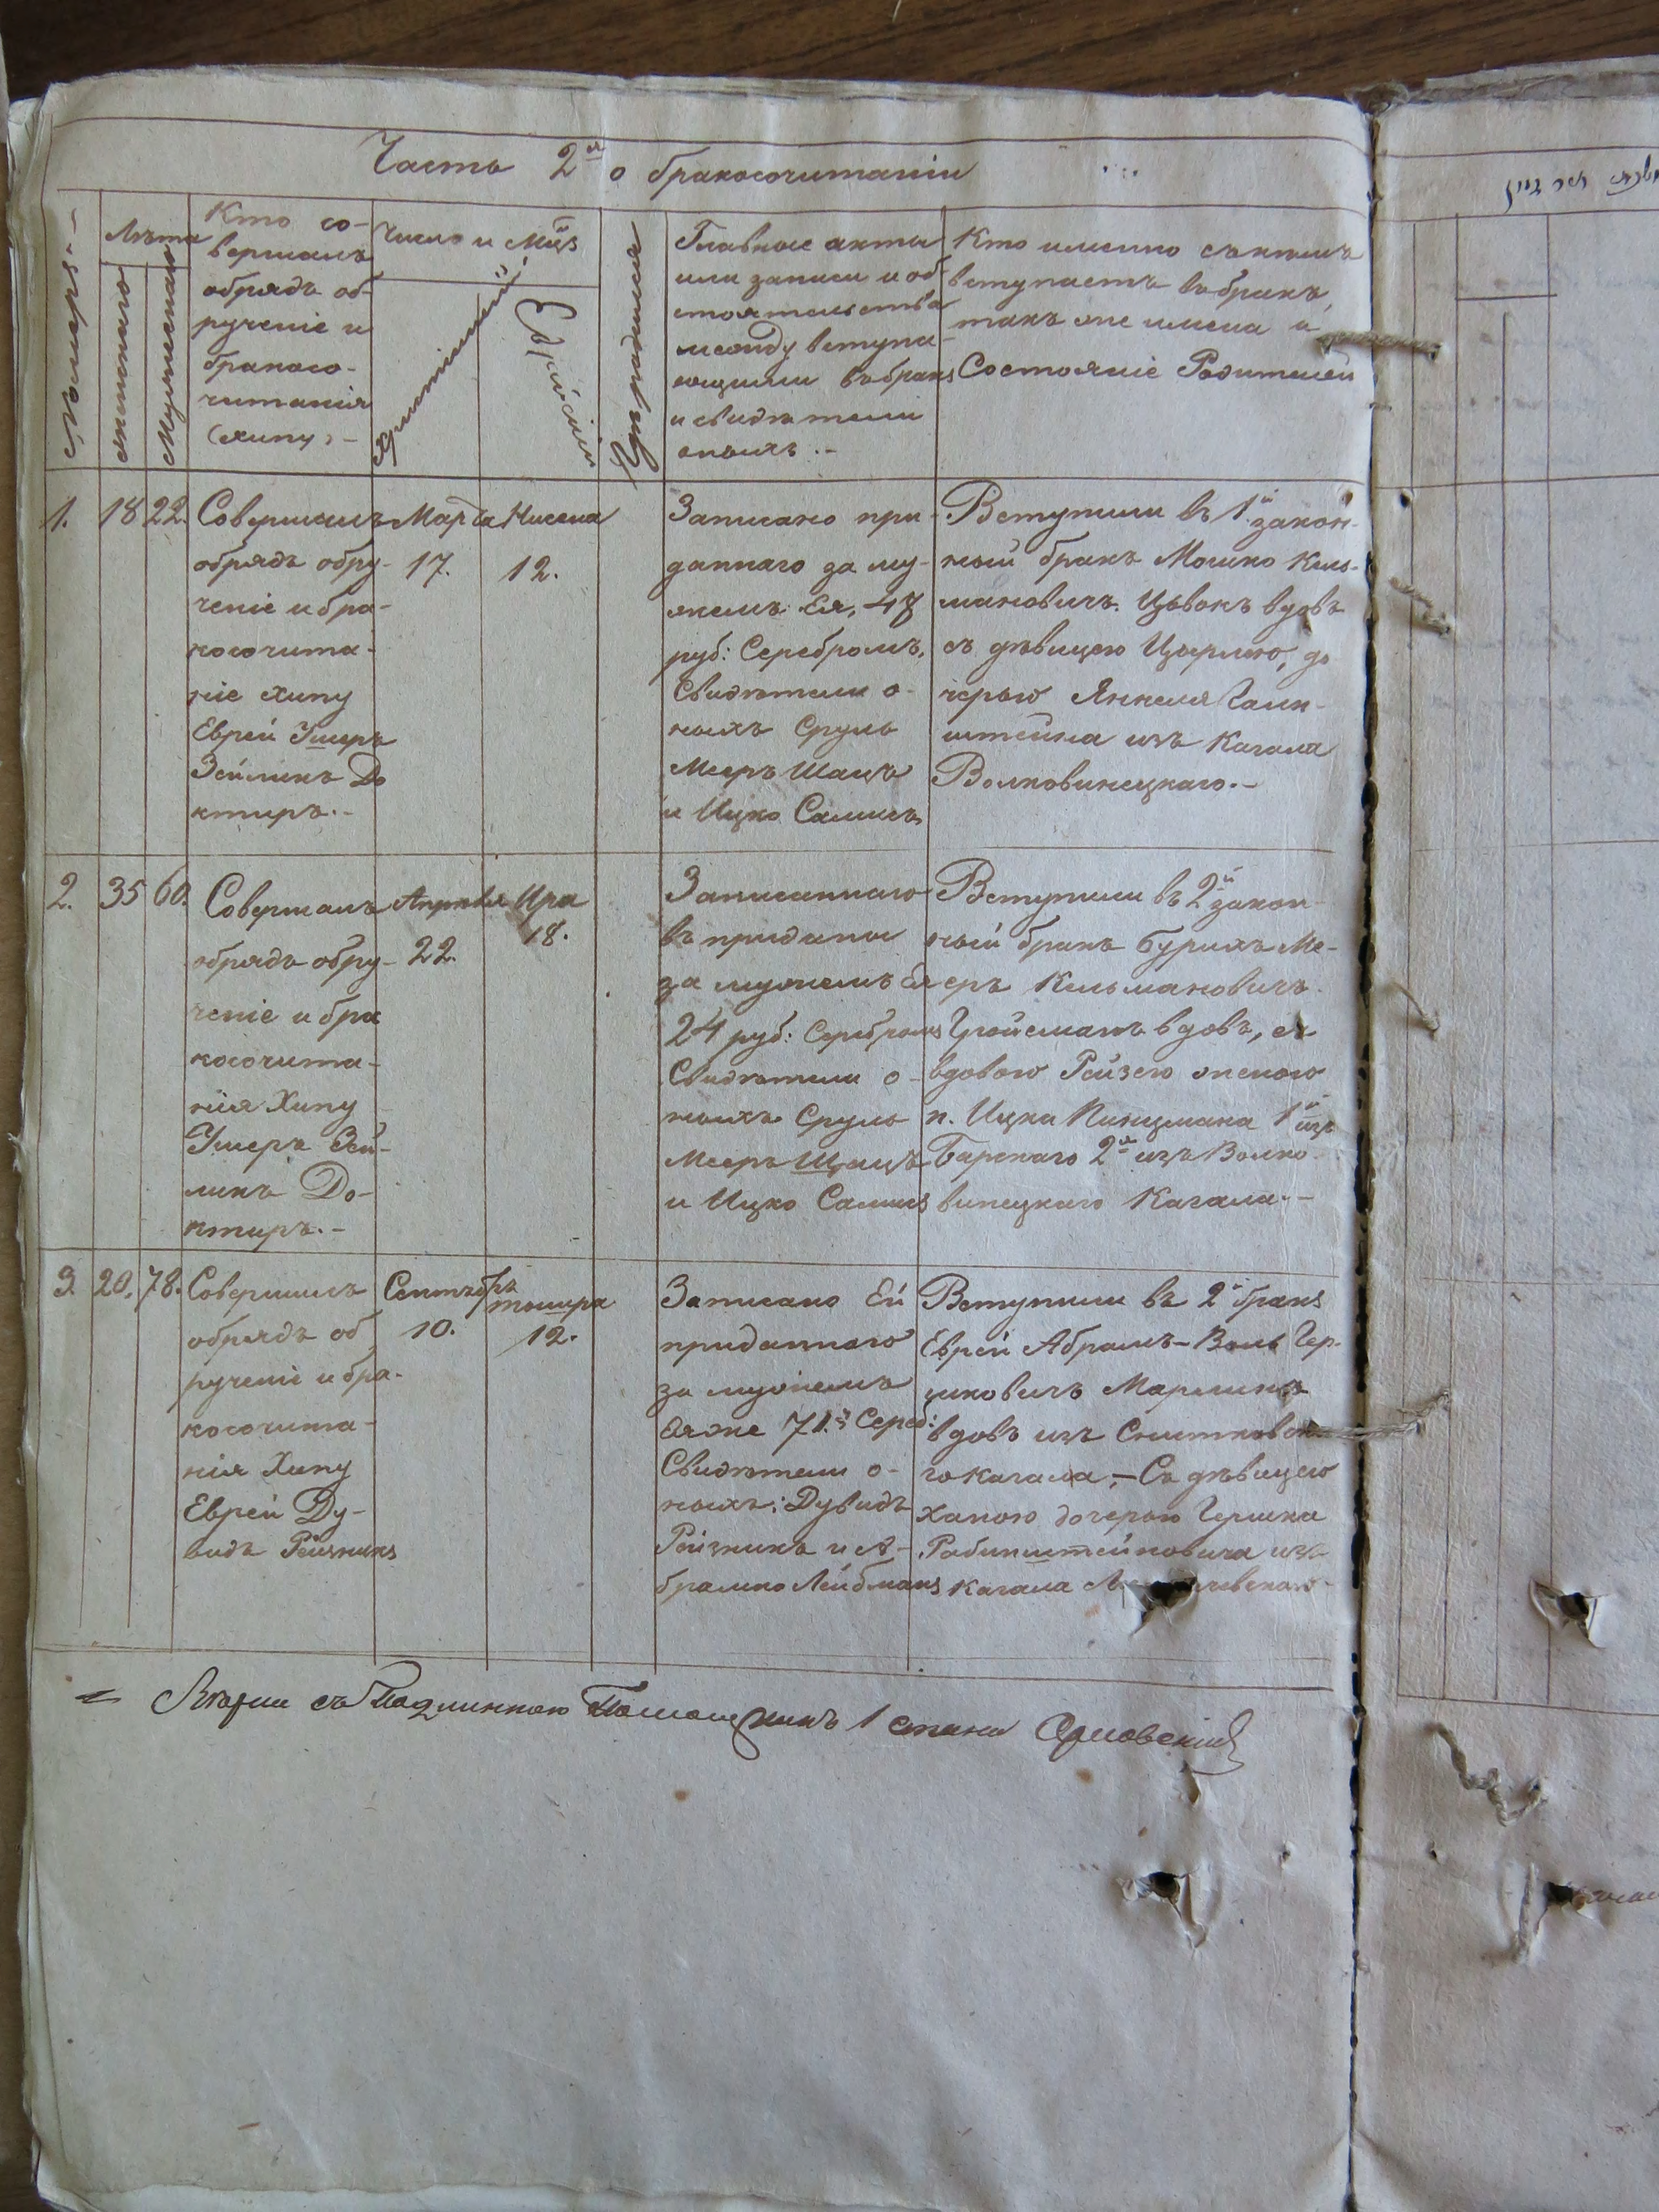 Часть 2я о бракосочитаніи
Номеръ
Лѣта
женскаго
Мужескаго
Кто со-
вершалъ
обрядъ об-
рученіе и
бракосо-
читанія
(хипу)
Число и Мцъ
Христіянскій
Еврейскій
Главные акты
или записи и об-
стоятельства
между вступа-
ющими въ бракъ
и свидѣтели
оныхъ.-
Кто именно съ кемъ
вступаетъ въ бракъ,
такъ же имена и
Состояніе Родителей
1.
18
22.
Совершалъ
обрядъ обру-
ченіе и бра-
косочита-
ніе хипу
Еврей Умеръ
Зейликъ До
ктиръ.-
Марта
17.
Нисена
12.
Записано при-
даннаго за му-
жемъ Ея, 48
руб: Серебромъ,
Свидѣтели о-
ныхъ Сруль
Мееръ Шацъ
и Ицко Салисъ
Вступили въ 1й закон-
ный бракъ Мошко Кель-
мановичъ Цывокъ вдовъ
съ дѣвицею Цырлею, до
черью Янкеля
штейна изъ Кагала
Волковинецкаго.-
2.
35
60.
Совершалъ
обрядъ обру-
ченіе и бра
косочита-
нія Хипу
Умеръ Зей-
ликъ До-
ктиръ.-
Апрѣля
22.
Ира
18.
Записаннаго
въ приданы
за мужемъ Ея
24 руб: Серебромъ
Свидѣтели о-
ныхъ Сруль
Мееръ Шацъ
и Ицко Салисъ
Вступили въ 2й закон-
ный бракъ Бурихъ Ме-
еръ Кельмановичъ
Гройсманъ вдовъ, съ
вдовою Рейзею женою
п. Ицка Кинцмана 1й изъ
Барскаго 2я изъ Волко-
винецкаго Кагала.-
3.
20.
78.
Совершилъ
обрядъ об
рученіе и бра-
косочита-
нія Хипу
Еврей Ду-
видъ Рейзникъ
Сентября
10.
тишра
12.
Записано Ей
приданнаго
за мужемъ
Ея же 71. Сереб:
Свидѣтели о-
ныхъ: Дувидъ
Рейзникъ и А-
брамко Лейбманъ
Вступили въ 2й бракъ
Еврей Абрамъ-Воль Гер-
шковичъ Марликъ
вдовъ изъ Снитковска-
го кагала,- Съ дѣвицею
Ханою дочерью Гершка
Рабинштейновича изъ
кагала
съ Подлиннымъ Помощникъ 1 стана Орловскій